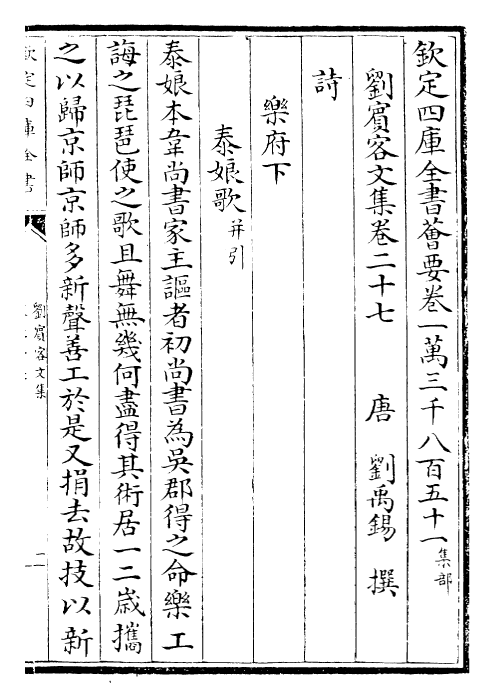 欽定四庫全書薈要卷一萬三千八百五十一集部
劉賓客文集卷二十七 唐 劉禹錫 撰
詩
樂府下
泰娘歌并引
泰娘本韋尚書家主謳者初尚書為吳郡得之命樂工
誨之琵琶使之歌且舞無幾何盡得其術居一二歲攜
之以歸京師京師多新聲善工於是又捐去故技以新
欽定四庫全書
劉賓客文集